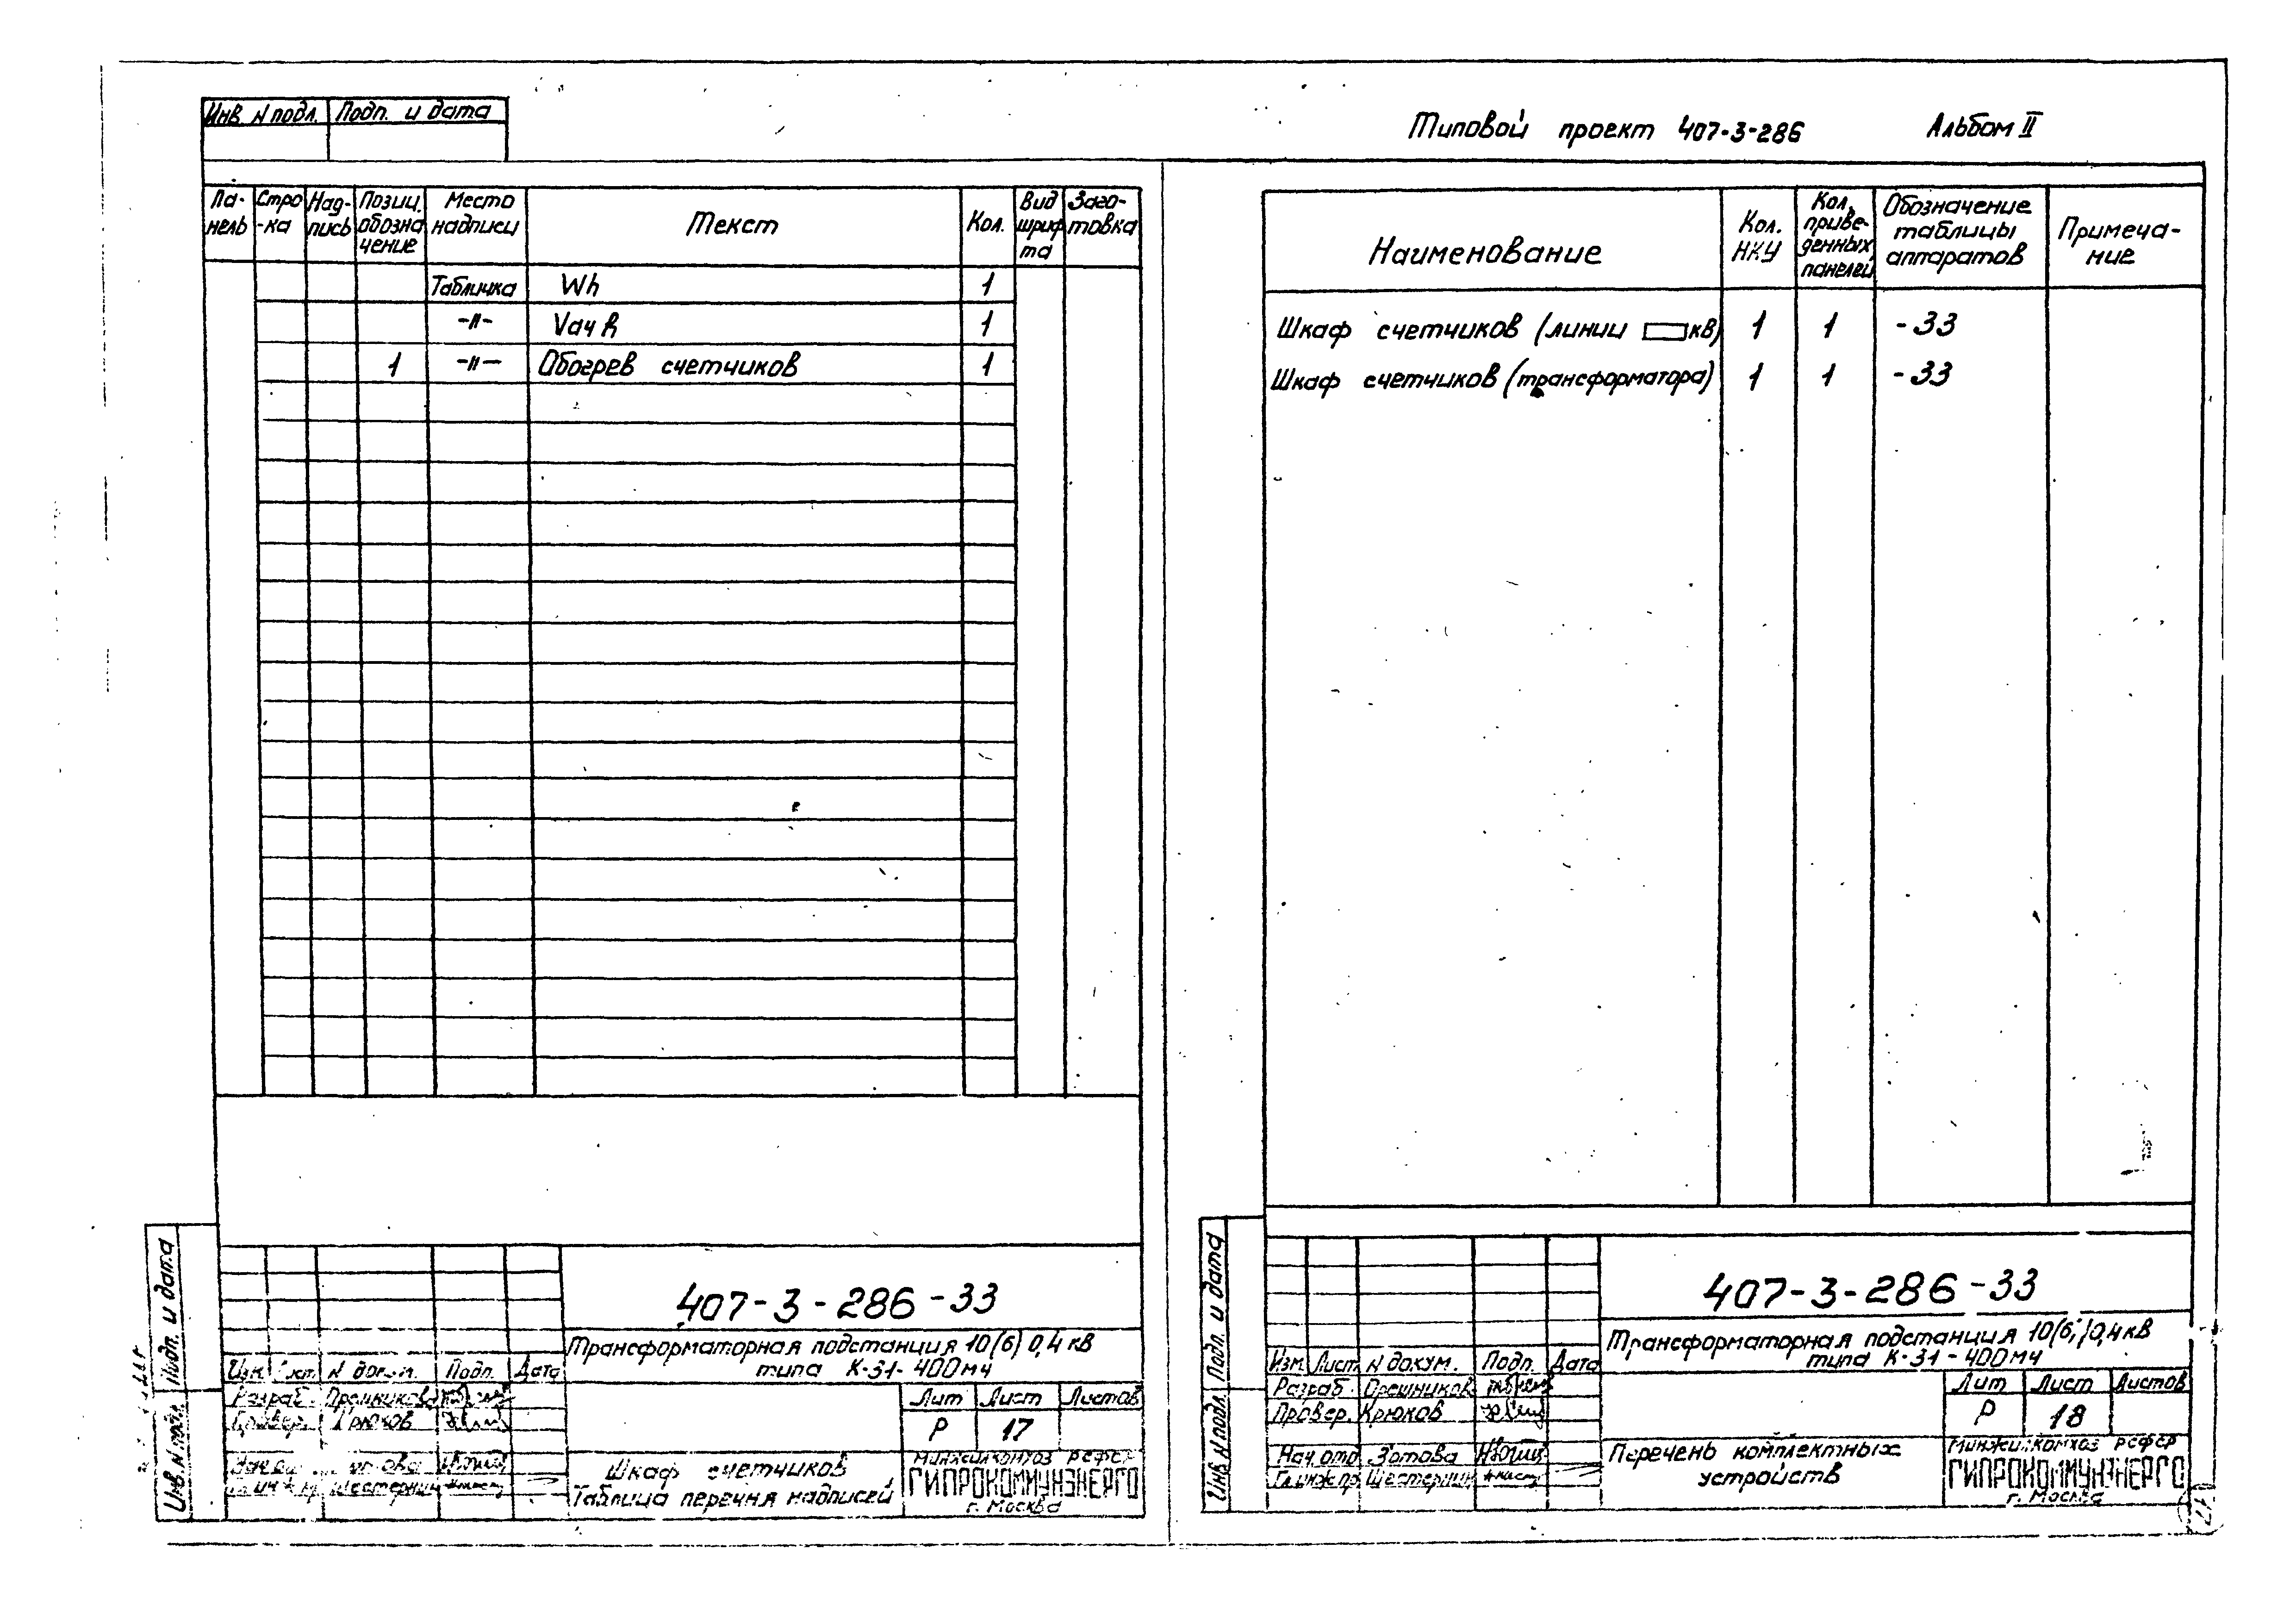 Инв. N подл. Подп. и дата
Типовой проект 407-3-286 Альбом II
Па- Стро Над- Позиц. Место Текст Кол. Вид Заго-
нель -ка пись обозна надписи шриф товка
чение та
Табличка Wh 1
-"- Vaч h 1
1 -"- Обогрев счетчиков 1
Подп. и дата
Инв. N подл.
407-3-286-33
Трансформаторная подстанция 10(6) 0,4 кв
типа К-31-400мч
Изм. N док-м. Подп. Дата
Разраб.
Провер. Крюков
Лит Лист Листов
Р 17
Шкаф счетчиков
Таблица перечня надписей
Минжилкомхоз РСФСР
ГИПРОКОММУНЭНЕРГО
г. Москва
Наименование Кол. НКУ Кол. приве- Обозначение Примеча-
денных таблицы ние
панелей аппаратов
Шкаф счетчиков (линии кв) 1 1 -33
Шкаф счетчиков (трансформатора) 1 1 -33
Подп. и дата
Инв. N подл.
407-3-286-33
Трансформаторная подстанция 10(6) 0,4 кв
типа К-31-400мч
Изм. Лист N докум. Подп. Дата
Разраб. Орешников
Провер. Крюков
Нач. отд Зотова
Гл. инж. пр. Шестернин
Лит Лист Листов
Р 18
Перечень комплектных
устройств
Минжилкомхоз РСФСР
ГИПРОКОММУНЭНЕРГО
г. Москва